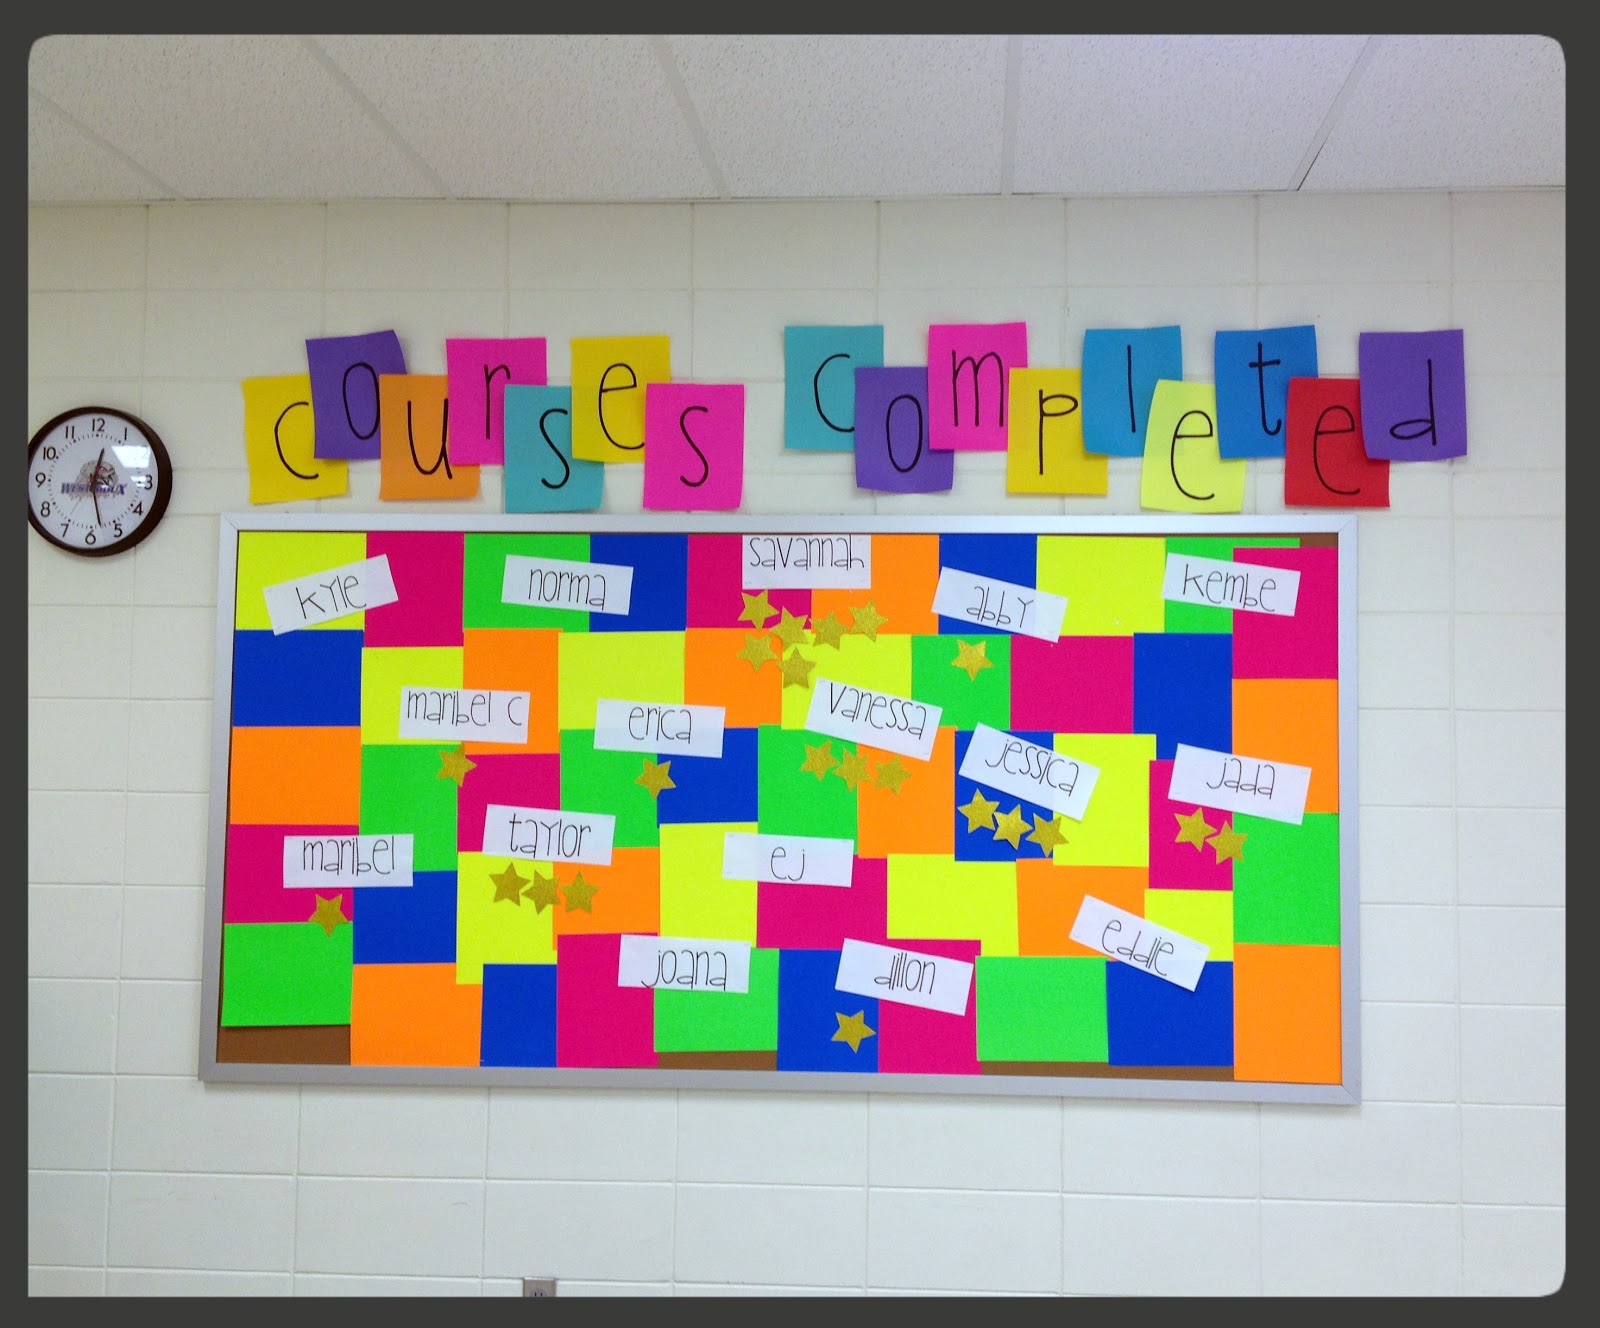 courses completed
12
11
1
10
9
3
8
4
7
5
6
WEST SIOUX
savannah
kyle
norma
abby
kembe
maribel c
erica
vanessa
jessica
jada
maribel
taylor
ej
joana
dillon
eddie